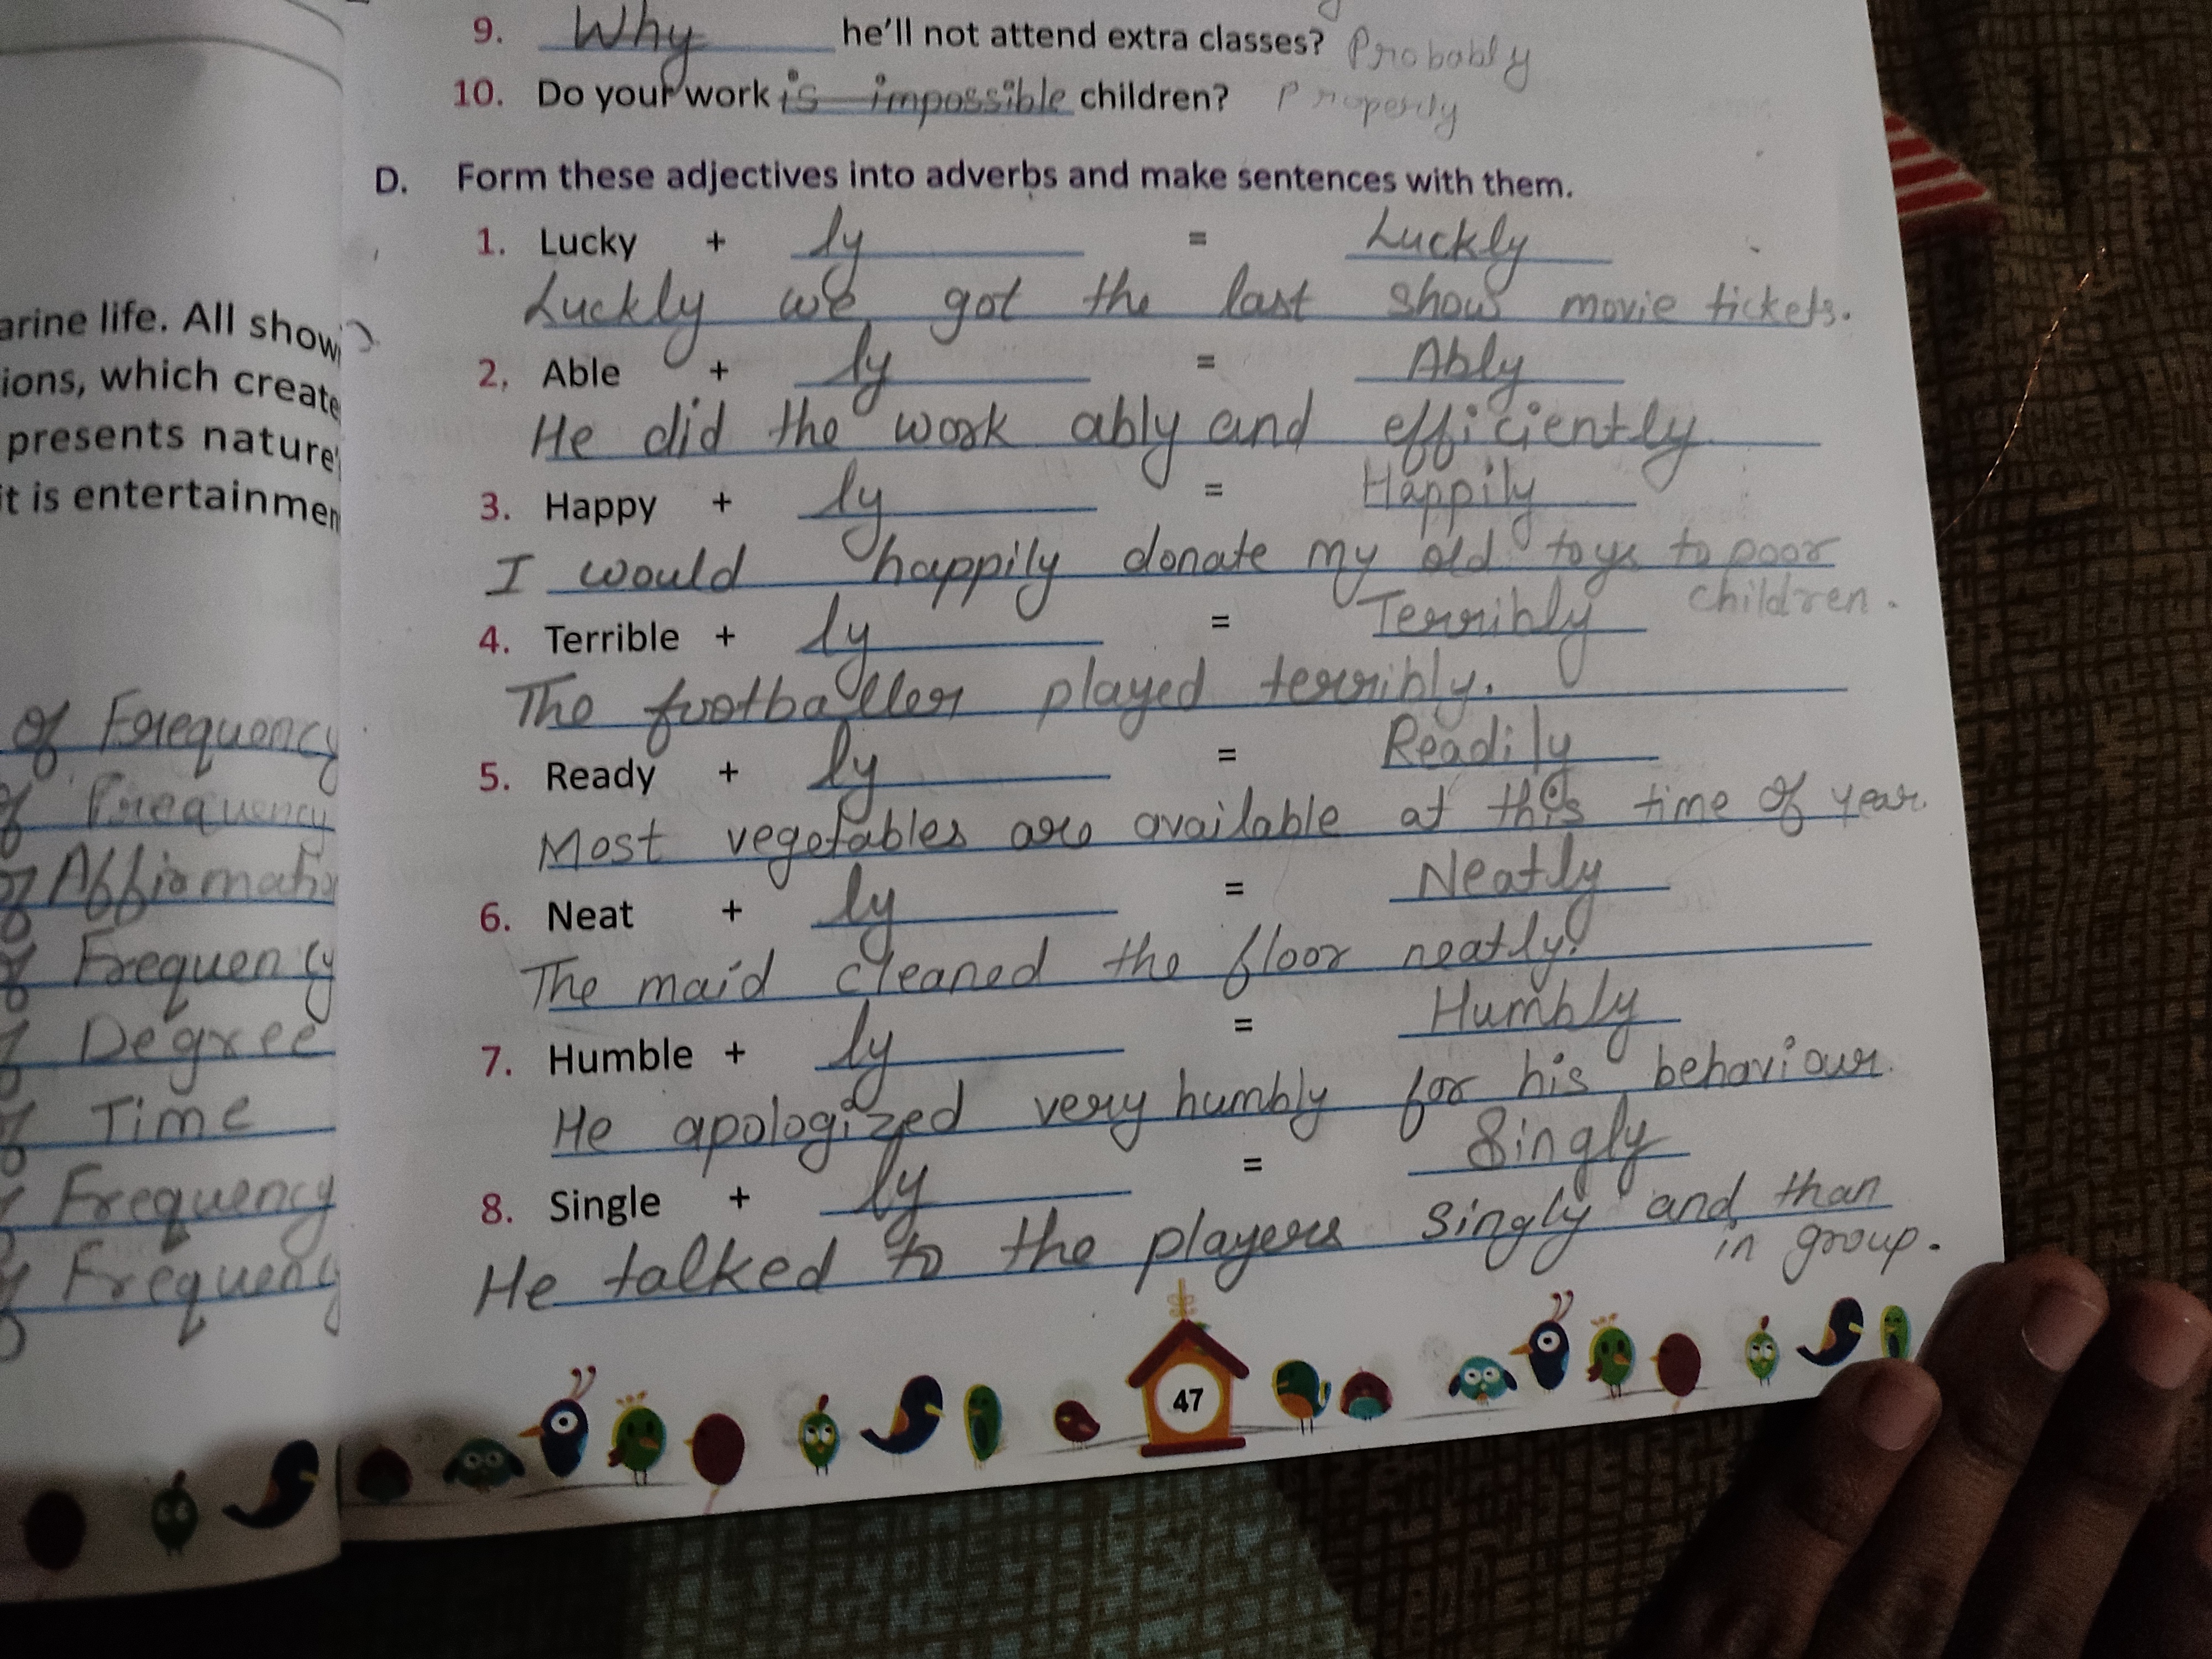 9. Why he'll not attend extra classes? Probably
10. Do your work is impossible children? Properly
D. Form these adjectives into adverbs and make sentences with them.
1. Lucky + ly = Luckly
Luckly we got the last show movie tickets.
2. Able + ly = Ably
He did the work ably and efficiently
3. Happy + ly = Happily
I would happily donate my old toys to poor
children.
4. Terrible + ly = Terribly
The footballer played terribly.
5. Ready + ly = Readily
Most vegetables are available at this time of year
6. Neat + ly = Neatly
The maid cleaned the floor neatly.
7. Humble + ly = Humbly
He apologized very humbly for his behaviour.
8. Single + ly = Singly
He talked to the players singly and than
in group.
47
arine life. All show
ions, which create
presents nature
it is entertainmen
of Frequency
Frequency
Frequency
Degree
Time
Frequency
Frequency